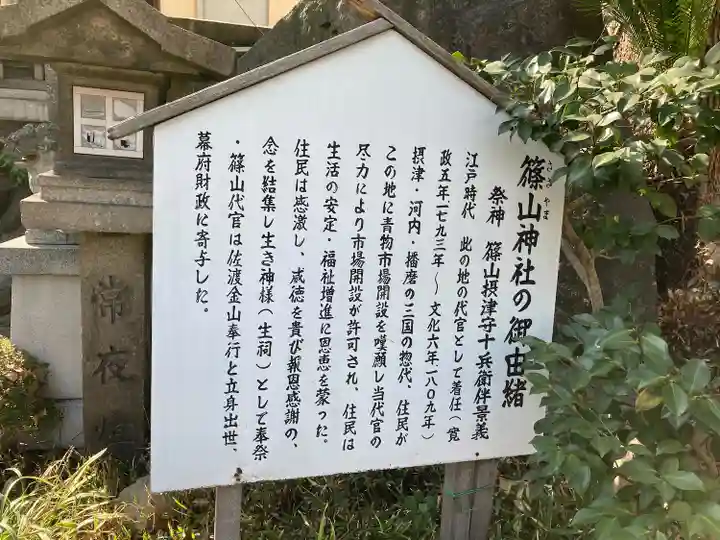 篠山神社の御由緒
ささ やま
祭神 篠山摂津守十兵衛伴景義
江戸時代 此の地の代官として着任(寛
政五年一七九三年〜文化六年一八〇九年)
摂津・河内・播磨の三国の惣代、住民が
この地に青物市場開設を嘆願し当代官の
尽力により市場開設が許可され、住民は
生活の安定・福祉増進に恩恵を蒙った。
住民は感激し、威徳を貴び報恩感謝の、
念を結集し生き神様(生祠)として奉祭
・篠山代官は佐渡金山奉行と立身出世、
幕府財政に寄与した。
常夜燈